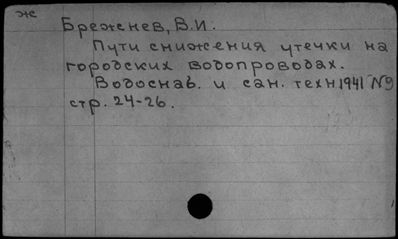 ж
Брежнев, В.И.
Пути снижения утечки на
городских водопроводах.
Водоснаб. и сан. техн 1941 №9
стр. 24-26.